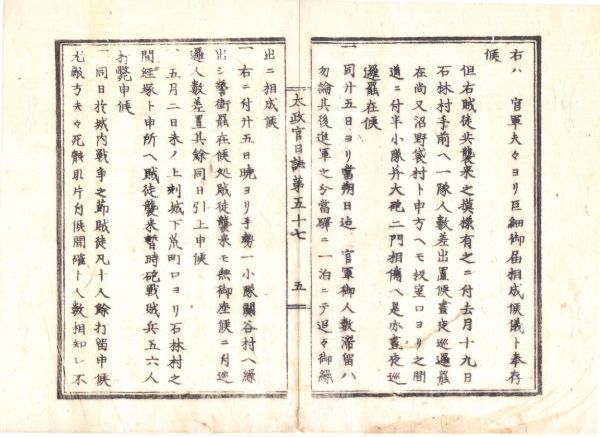 右ハ　官軍夫々ヨリ巨細御届相成候儀ト奉存
候
但右賊徒共襲来之模様有之ニ付去月十九日
石林村手前ヘ一隊人数差出置候昼夜巡邏罷
在尚又沼野袋村ト申方ヘモ板室口ヨリ之間
道ニ付半小隊并大砲二門相備ヘ是亦昼夜巡
邏罷在候
一同廿五日ヨリ当朔日迄　官軍御人数滞留ハ
勿論其後進軍之分当驛ニ一泊ニテ追々御繰
出ニ相成候
一右ニ付廿五日暁ヨリ手勢一小隊関谷村ヘ繰
出シ警衛罷在候処賊徒襲来モ無御座候ニ付巡
邏人数差置其餘同日引上申候
一五月二日未ノ上刻城下荒町口ヨリ石林村之
間経塚ト申所ヘ賊徒襲来暫時砲戦賊兵五六人
打斃申候
一同日於城内戦争之節賊徒凡十人餘打留申候
尤敵方夫々死骸取片付候間確ト人数相知レ不
太政官日誌第五十七
五